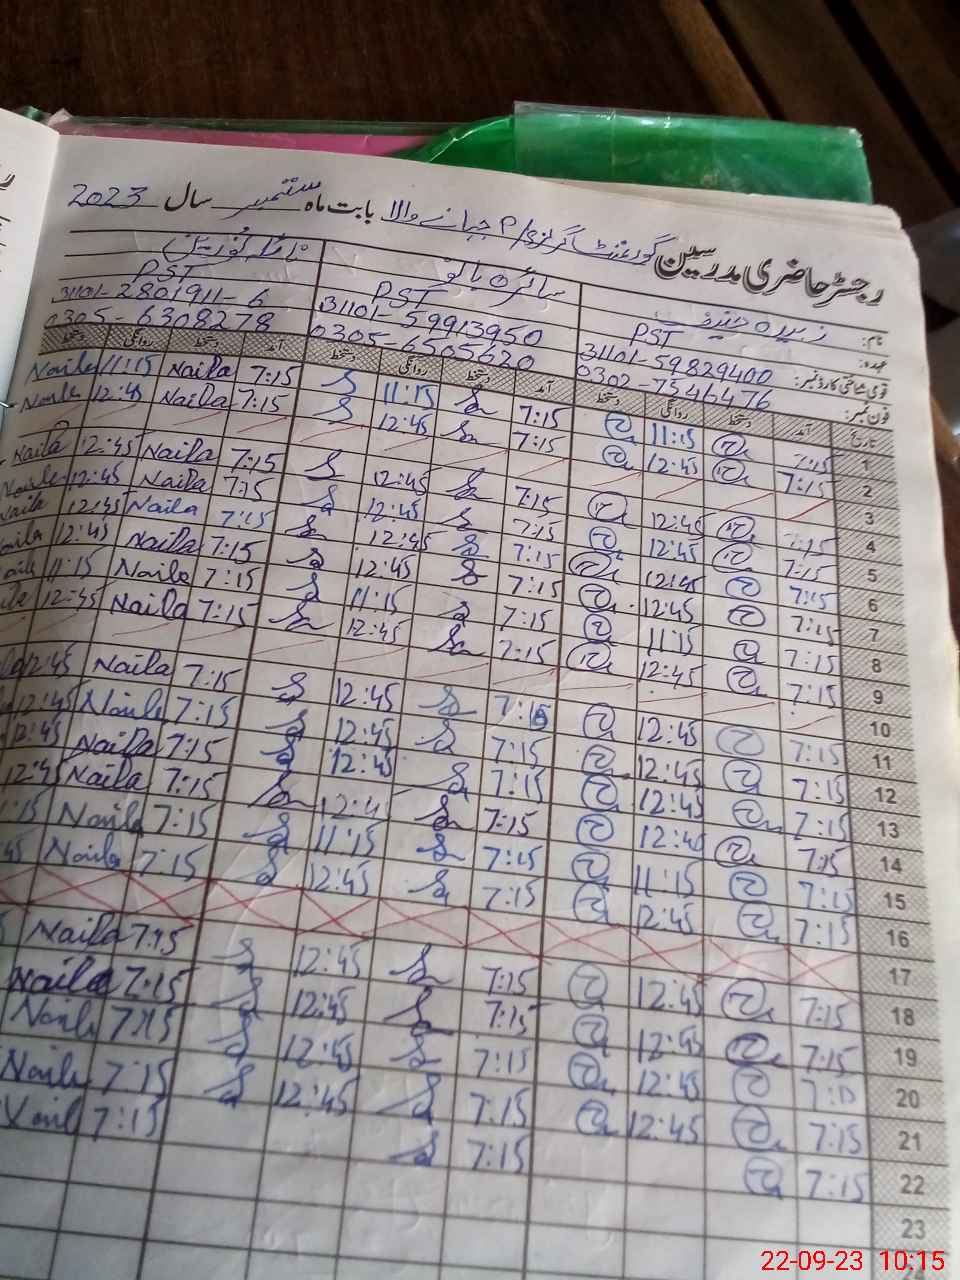 رجسٹر حاضری مدرسین گورنمنٹ گرلز / P جہانے والا بابت ماہ ستمبر سال 2023
نام: سائرہ بانو
عہدہ: PST PST PST
قومی شناختی کارڈ نمبر: 31101-59829400 31101-59913950 31101-2801911-6
فون نمبر: 0302-7546476 0305-6505620 0305-6308278
تاریخ آمد دستخط روانگی دستخط آمد دستخط روانگی دستخط آمد دستخط روانگی دستخط
1 7:15 11:15 7:15 11:15 7:15 Naila 11:15 Naila
2 7:15 12:45 7:15 12:45 7:15 Naila 12:45 Naila
3
4 7:15 12:45 7:15 12:45 7:15 Naila 12:45 Naila
5 7:15 12:45 7:15 12:45 7:15 Naila 12:45 Naila
6 7:15 12:45 7:15 12:45 7:15 Naila 12:45
7 7:15 12:45 7:15 12:45 7:15 Naila 12:45
8 7:15 11:15 7:15 11:15 7:15 Naila 11:15
9 7:15 12:45 7:15 12:45 7:15 Naila 12:45
10
11 7:15 12:45 7:15 12:45 7:15 Naila 12:45
12 7:15 12:45 7:15 12:45 7:15 Naila 12:45
13 7:15 12:45 7:15 12:45 7:15 Naila 12:45
14 7:15 12:45 7:15 7:15 Naila 12:45
15 7:15 11:15 7:15 11:15 7:15 Naila
16 7:15 12:45 7:15 12:45 7:15 Naila
17
18 7:15 12:45 7:15 12:45 7:15 Naila
19 7:15 12:45 7:15 12:45 7:15 Naila
20 12:45 7:15 12:45 7:15 Naila
21 7:15 12:45 7:15 12:45 7:15 Naila
22 7:15 7:15 7:15
23
22-09-23 10:15